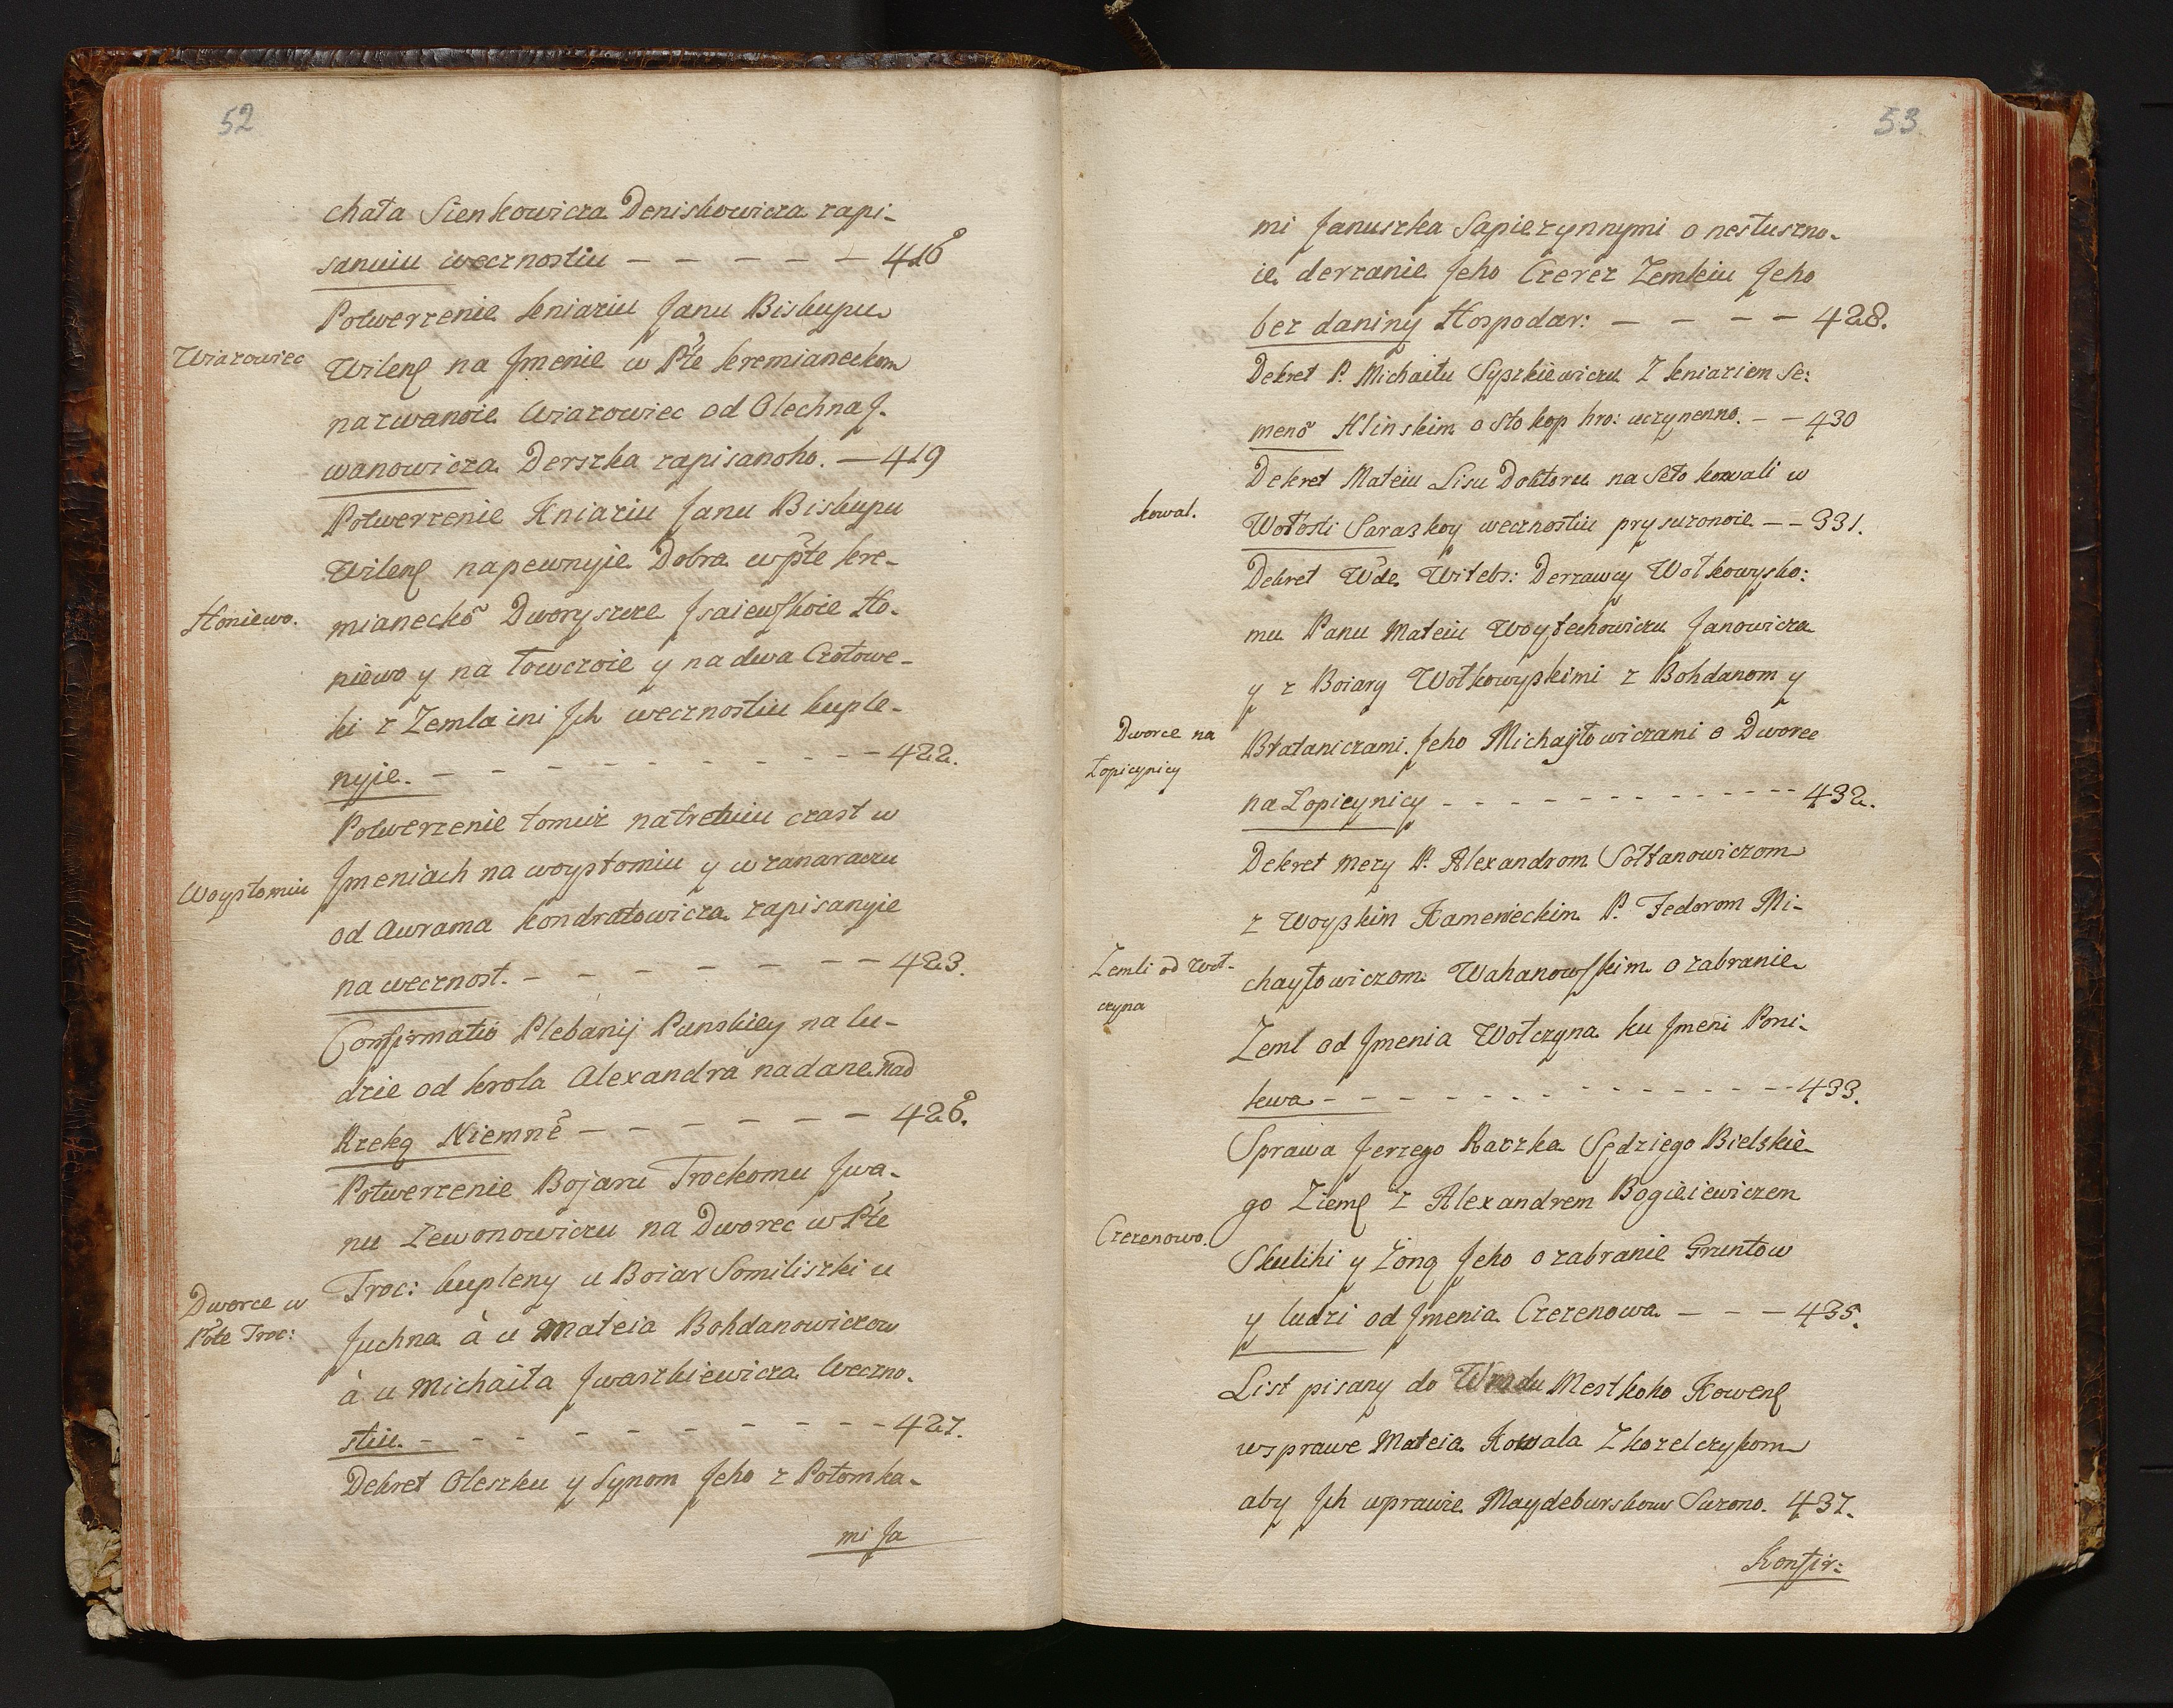 52
chata Sienkowicza Deniskowicza zapi-
sanuiu wecznostiu - - - - - 416
Potwerzenie kniaziu Janu Biskupu
Wiazowiec
Wilen na Jmenie w Pte kremianeckom
nazwanoie Wiazowiec od Olechna J-
wanowicza Derszka zapisanoho. - 419
Potwerzenie Kniaziu Janu Biskupu
Wilen na pewnyie Dobra w pte kre-
Honiewo.
mianecko Dworyszcze Jsaiewskoie Ho-
niewo y na Łowczoie y na dwa Czołowe-
ki z Zemla ini Jch wecznostiu kuple-
nyie. - - - - - - - - - 422.
Potwerzenie tomuż na tretiuiu czast w
Woystomiu
Jmeniach na woystomiu y w zanaraczu
od Awrama kondratowicza zapisanyie
na wecznost. - - - - - - - 423.
Confirmatio Plebanij Punskiey na lu-
dzie od krola Alexandra nadane nad
Rzeką Niemnē - - - - - - 426.
Potwerzenie Bojaru Trockomu Jwa-
nu Lewonowiczu na Dworec w Pte
Dworce w
Pote Troc:
Troc: kupleny u Boiar Somiliszki u
Juchna à u Mateia Bohdanowiczow
à u Michaiła Jwaszkiewicza Weczno-
stiu. - - - - - - - - - 427.
Dekret Oleszku y Synom Jeho z Potomka-
mi Ja
53
mi Januszka Sapiezynnymi o nesłuszno-
ie derzanie Jeho Czerez Zemleiu Jeho
bez daniny Hospodar: - - - - 428.
Dekret P. Michaiłu Syszkiewiczu Z kniaziem Se:
meno Klinskim o sto kop hro: uczynenno. - - 430
Dekret Mateiu Lisu Doktoru na Seło kowali w
kowal.
Wołosti Saraskoy wecznostiu prysuzonoie - - 331.
Dekret Wde Witebs: Derzawcy Wołkowysko:
mu Panu Mateiu Woytechowiczu Janowicza
y z Boiary Wołkowyskimi z Bohdanom y
Dworce na
Łopicynicy
Brataniczami Jeho Michayłowiczami o Dworec
na Łopicynicy - - - - - - - - - - 432.
Dekret mezy P. Alexandrom Sołtanowiczom
z Woyskim Kameneckim P. Fedorom Mi-
Zemli od Woł-
czyna
chayłowiczom Wahanowskim o zabranie
Zeml od Jmenia Wołczyna ku Jmeni Poni-
kwa - - - - - - - - - - - 433.
Sprawa Jerzego Raczka Sędziego Bielskie-
go Ziem z Alexandrem Bogieiewiczem
Czezenowo.
Skulihi y Żoną Jeho o zabranie Gruntow
y ludzi od Jmenia Czezenowa - - - 435.
List pisany do Wradu Mestkoho Kowen
w sprawe Mateia Kowala Z kozelczykom
aby Jch w prawie Maydeburskom Suzono. 437.
Konfir: